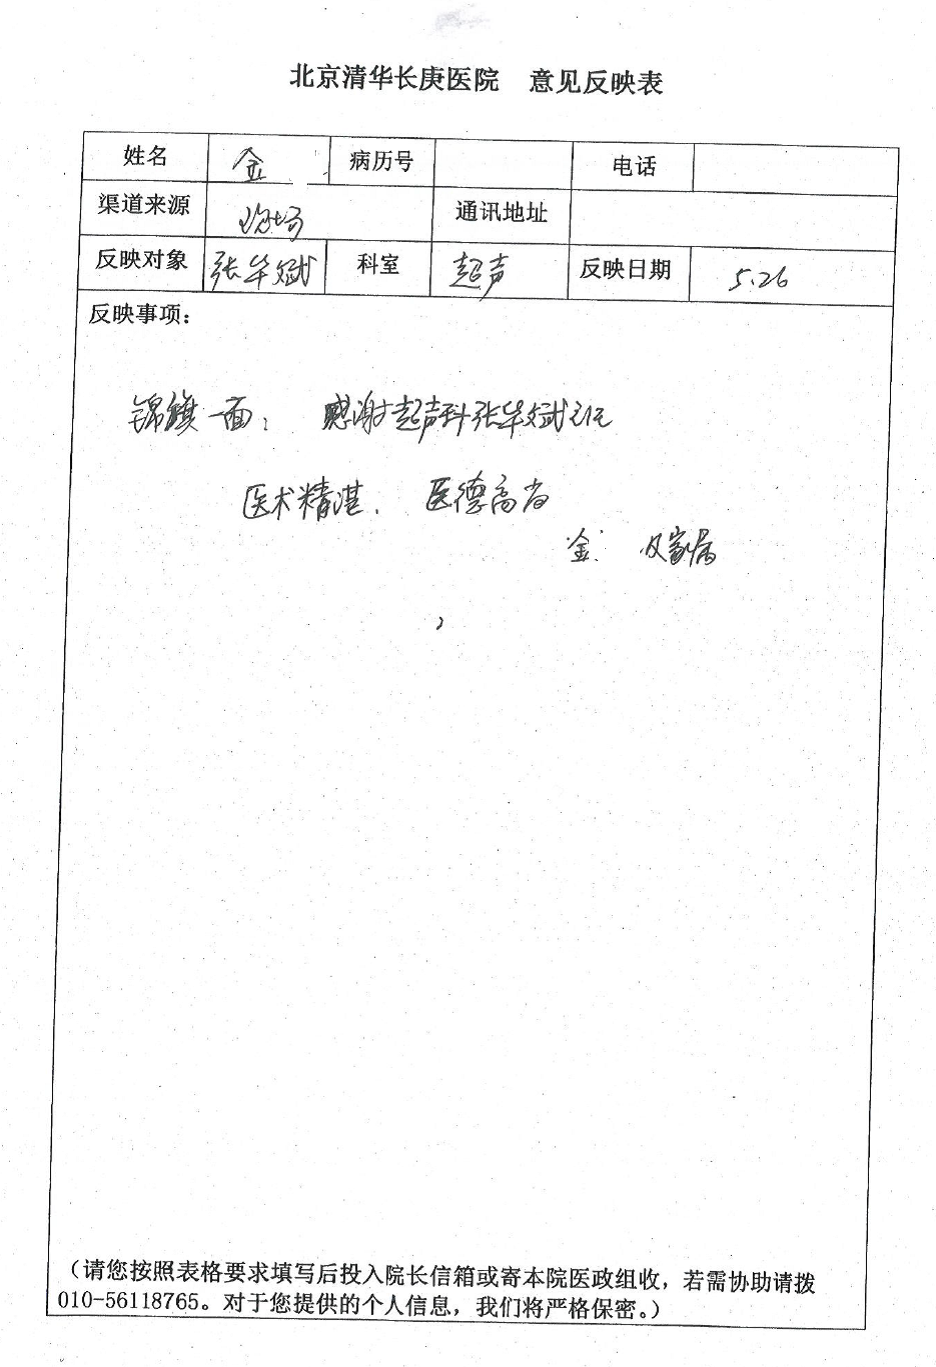 北京清华长庚医院 意见反映表
姓名 金 病历号 电话
渠道来源 现场 通讯地址
反映对象 张华斌 科室 超声 反映日期 5.26
反映事项：
锦旗一面： 感谢超声科张华斌主任
医术精湛， 医德高尚
金 及家属
（请您按照表格要求填写后投入院长信箱或寄本院医政组收，若需协助请拨
010-56118765。对于您提供的个人信息，我们将严格保密。）